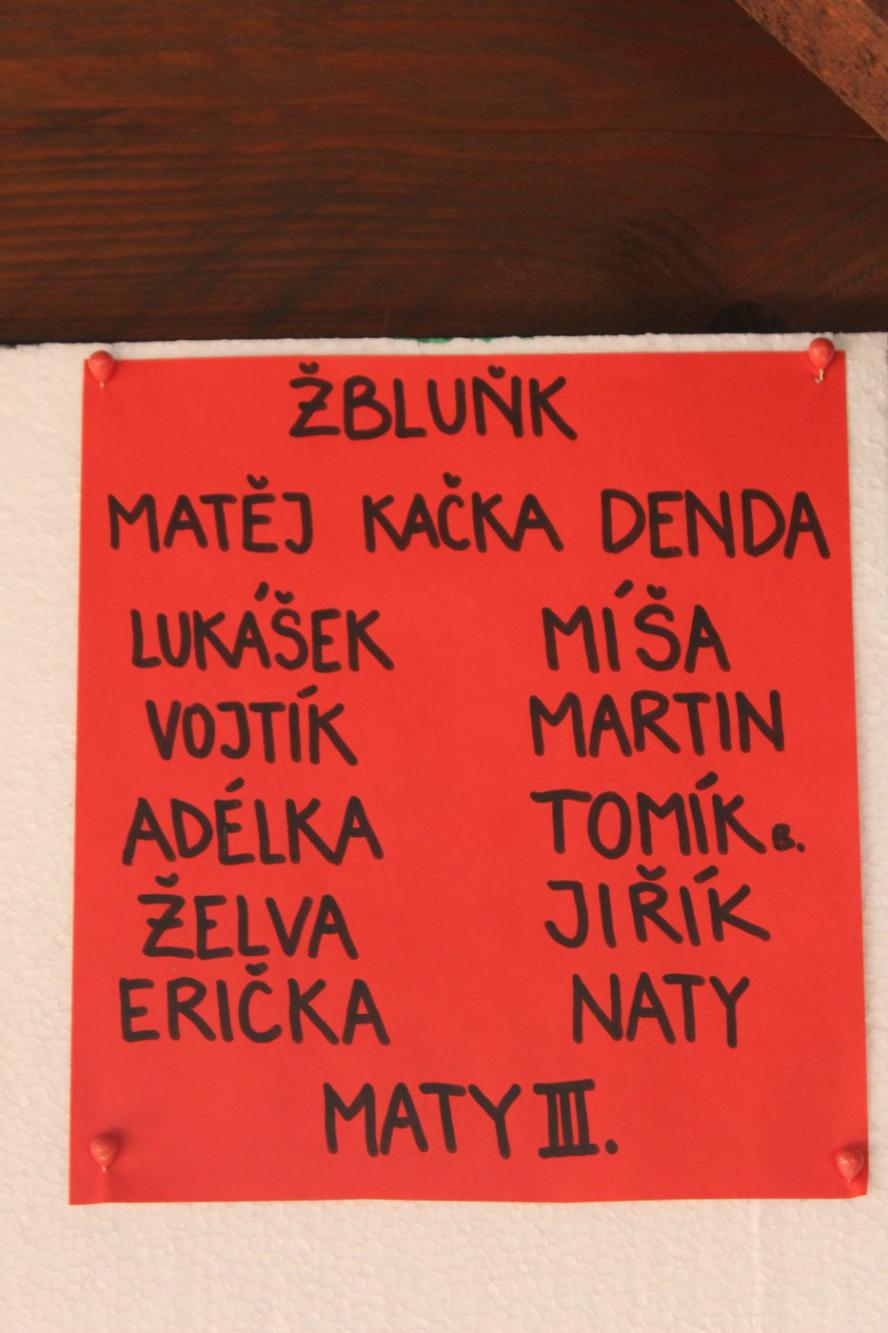 ŽBLUŇK
MATĚJ KAČKA DENDA
LUKÁŠEK MÍŠA
VOJTÍK MARTIN
ADÉLKA TOMÍK B.
ŽELVA JIŘÍK
ERIČKA NATY
MATY III.